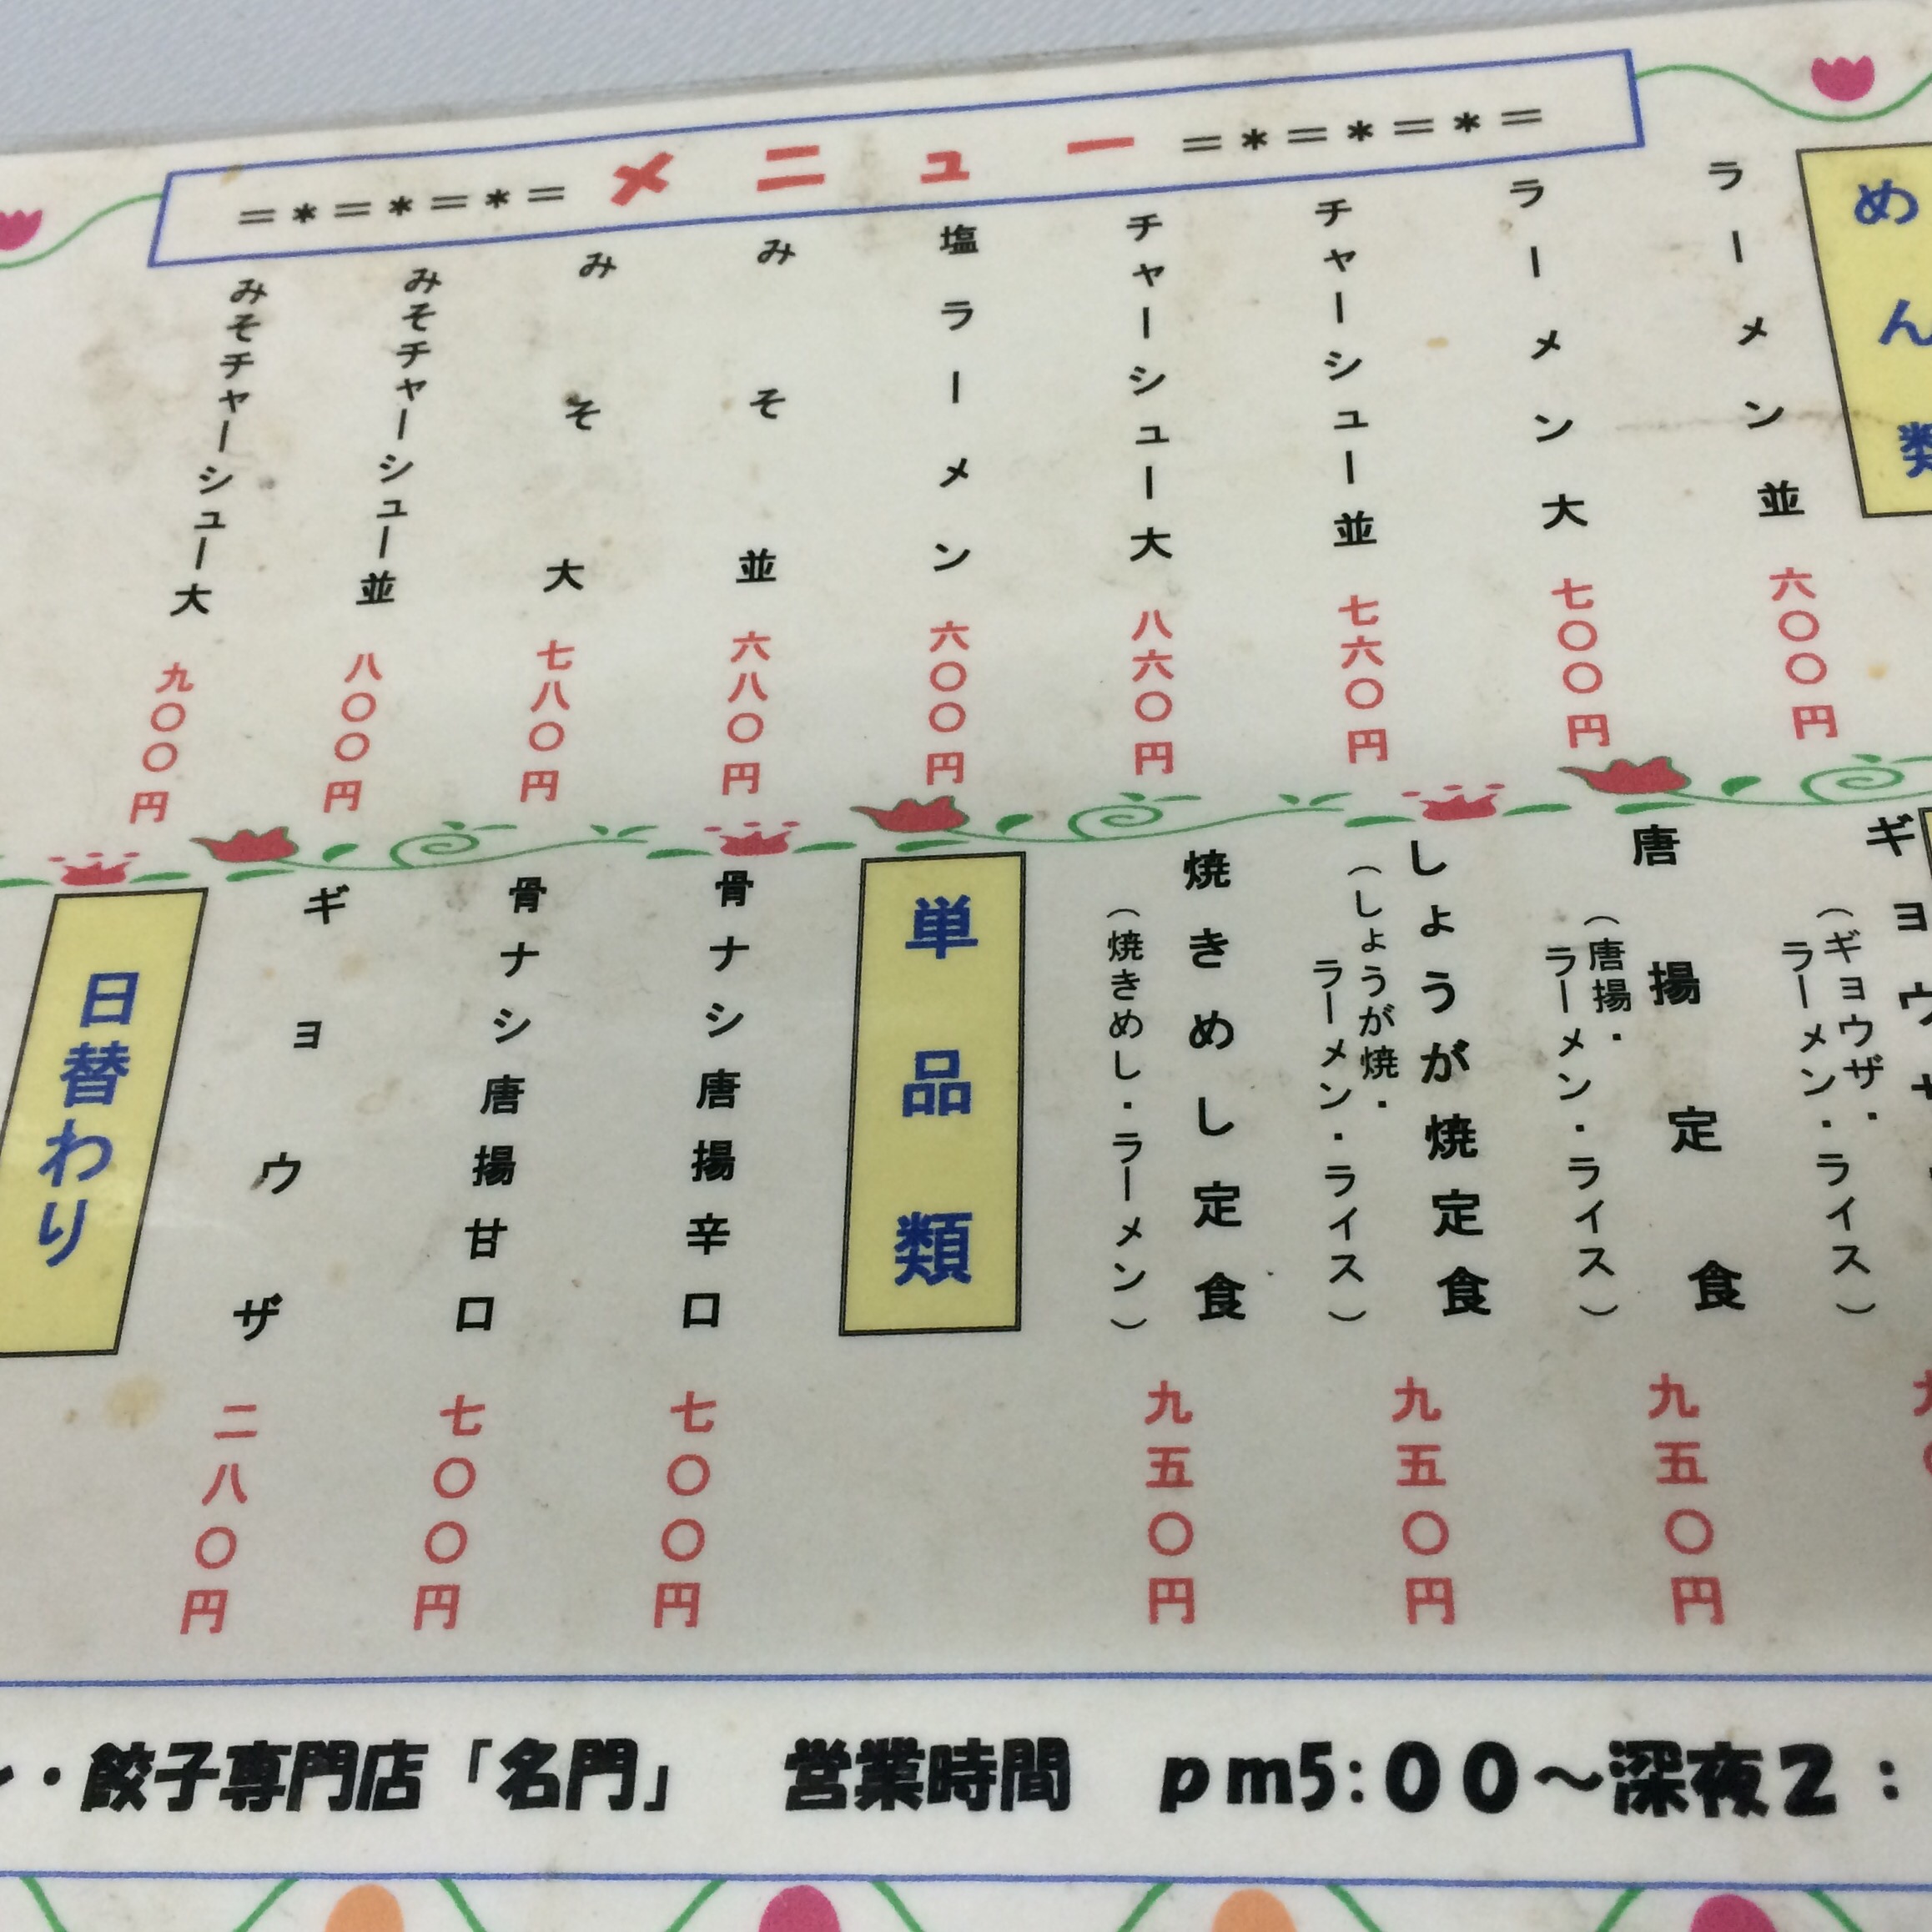 =*=*=*= メニュー =*=*=*=
めん類
ラーメン並 六〇〇円
ラーメン大 七〇〇円
チャーシュー並 七六〇円
チャーシュー大 八六〇円
塩ラーメン 六〇〇円
みそ並 六八〇円
みそ大 七八〇円
みそチャーシュー並 八〇〇円
みそチャーシュー大 九〇〇円
ギョウザ
(ギョウザ・
ラーメン・ライス)
唐揚定食 九五〇円
(唐揚・
ラーメン・ライス)
しょうが焼定食 九五〇円
(しょうが焼・
ラーメン・ライス)
焼きめし定食 九五〇円
(焼きめし・ラーメン)
単品類
骨ナシ唐揚辛口 七〇〇円
骨ナシ唐揚甘口 七〇〇円
ギョウザ 二八〇円
日替わり
・餃子専門店「名門」 営業時間 pm5:00～深夜2: